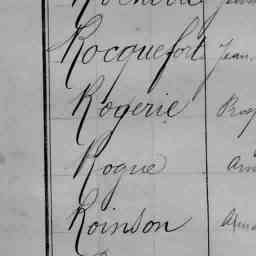 Rocquefort Jean
Rogerie
Rogue
Roinson